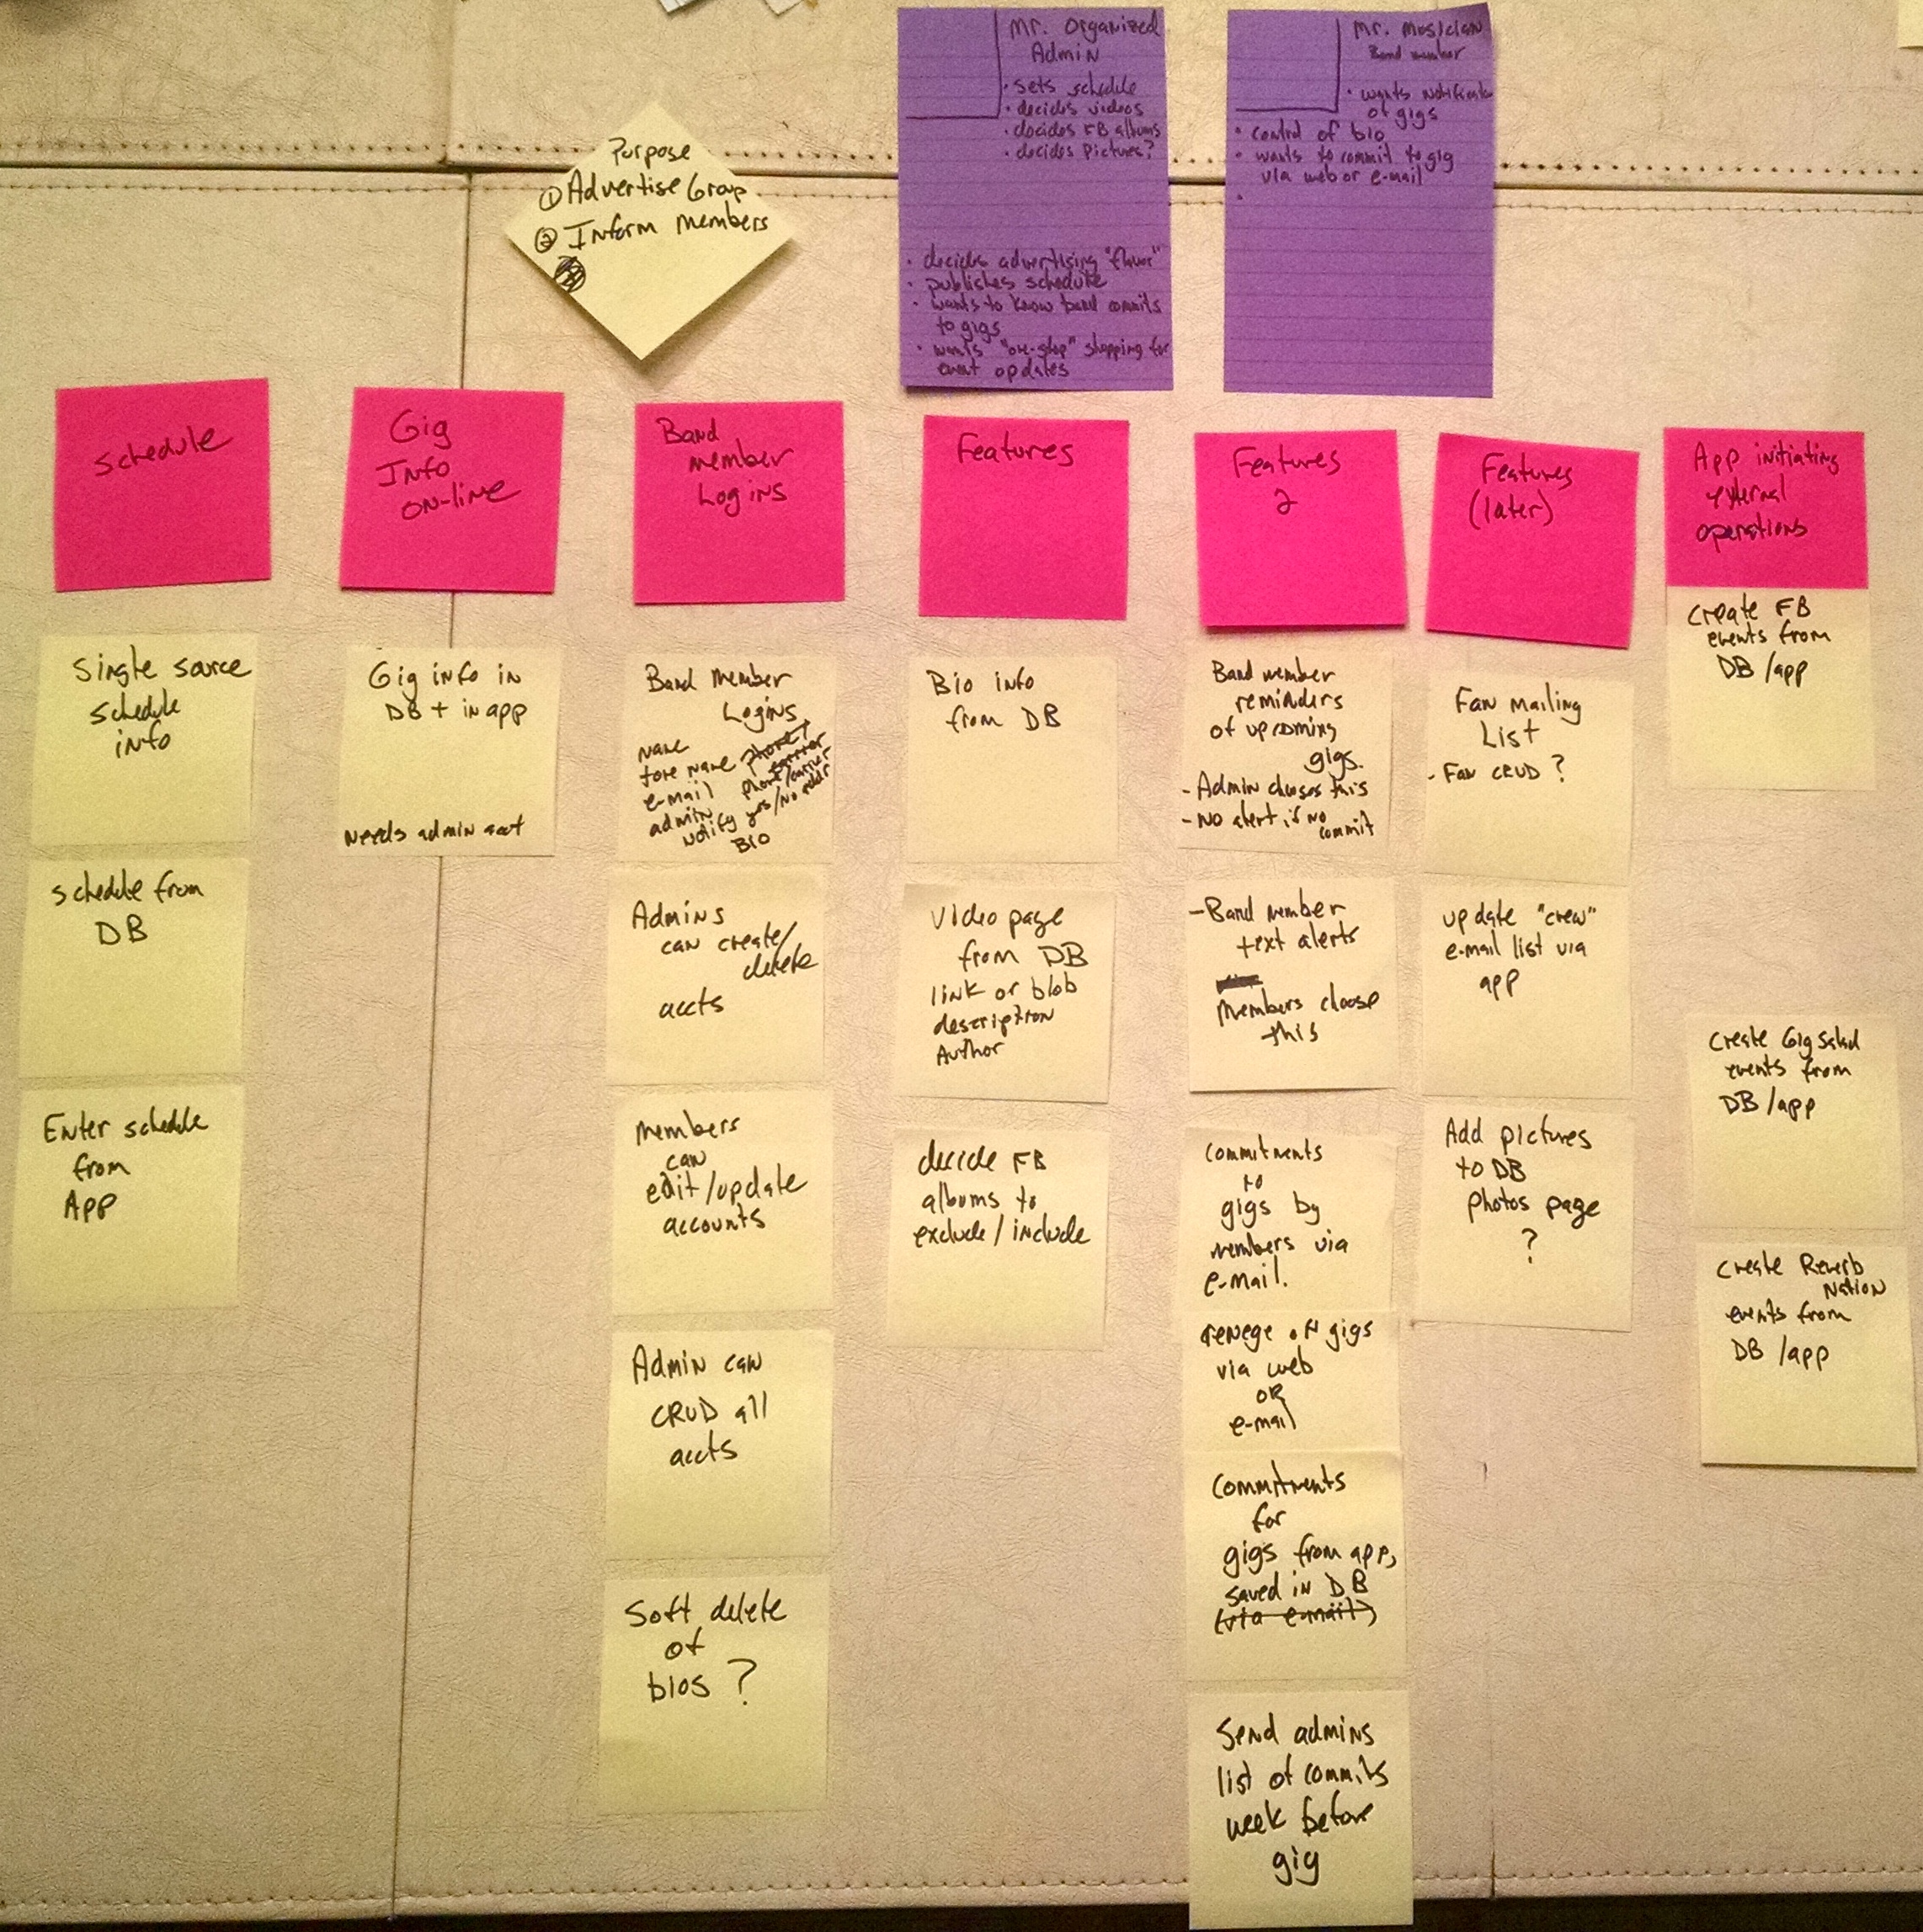 Purpose
① Advertise Group
② Inform Members
Mr. Organized
Admin
· sets schedule
· decides videos
· decides FB albums
· decides Pictures?
· decides advertising "flavor"
· publishes schedule
· wants to know band commits
to gigs
· wants "one-stop" shopping for
event updates
Mr. Musician
Band member
· wants notificatio
of gigs
· control of bio
· wants to commit to gig
via web or e-mail
Schedule
Single source
schedule
info
schedule from
DB
Enter schedule
from
App
Gig
Info
on-line
Gig info in
DB + in app
Needs admin acct
Band
member
Logins
Band Member
Logins
name
fore name phone/
carrier
e-mail phone/carrier
admin yes/no addr
notify
Bio
Admins
can create/
delete
accts
members
can
edit/update
accounts
Admin can
CRUD all
accts
Soft delete
of
bios ?
Features
Bio info
from DB
Video page
from DB
link or blob
description
Author
decide FB
albums to
exclude / include
Features
2
Band member
reminders
of upcoming
gigs.
- Admin chooses this
- No alert, if no
commit
- Band member
text alerts
Members choose
this
Commitments
to
gigs by
members via
e-mail.
renege on gigs
via web
OR
e-mail
Commitments
for
gigs from app,
saved in DB
(via e-mail)
Send admins
list of commits
week before
gig
Features
(later)
Fan Mailing
List
- Fan CRUD ?
update "crew"
e-mail list via
app
Add pictures
to DB
photos page
?
App initiating
external
operations
Create FB
events from
DB /app
Create Gig Salad
events from
DB /app
Create Reverb
Nation
events from
DB /app